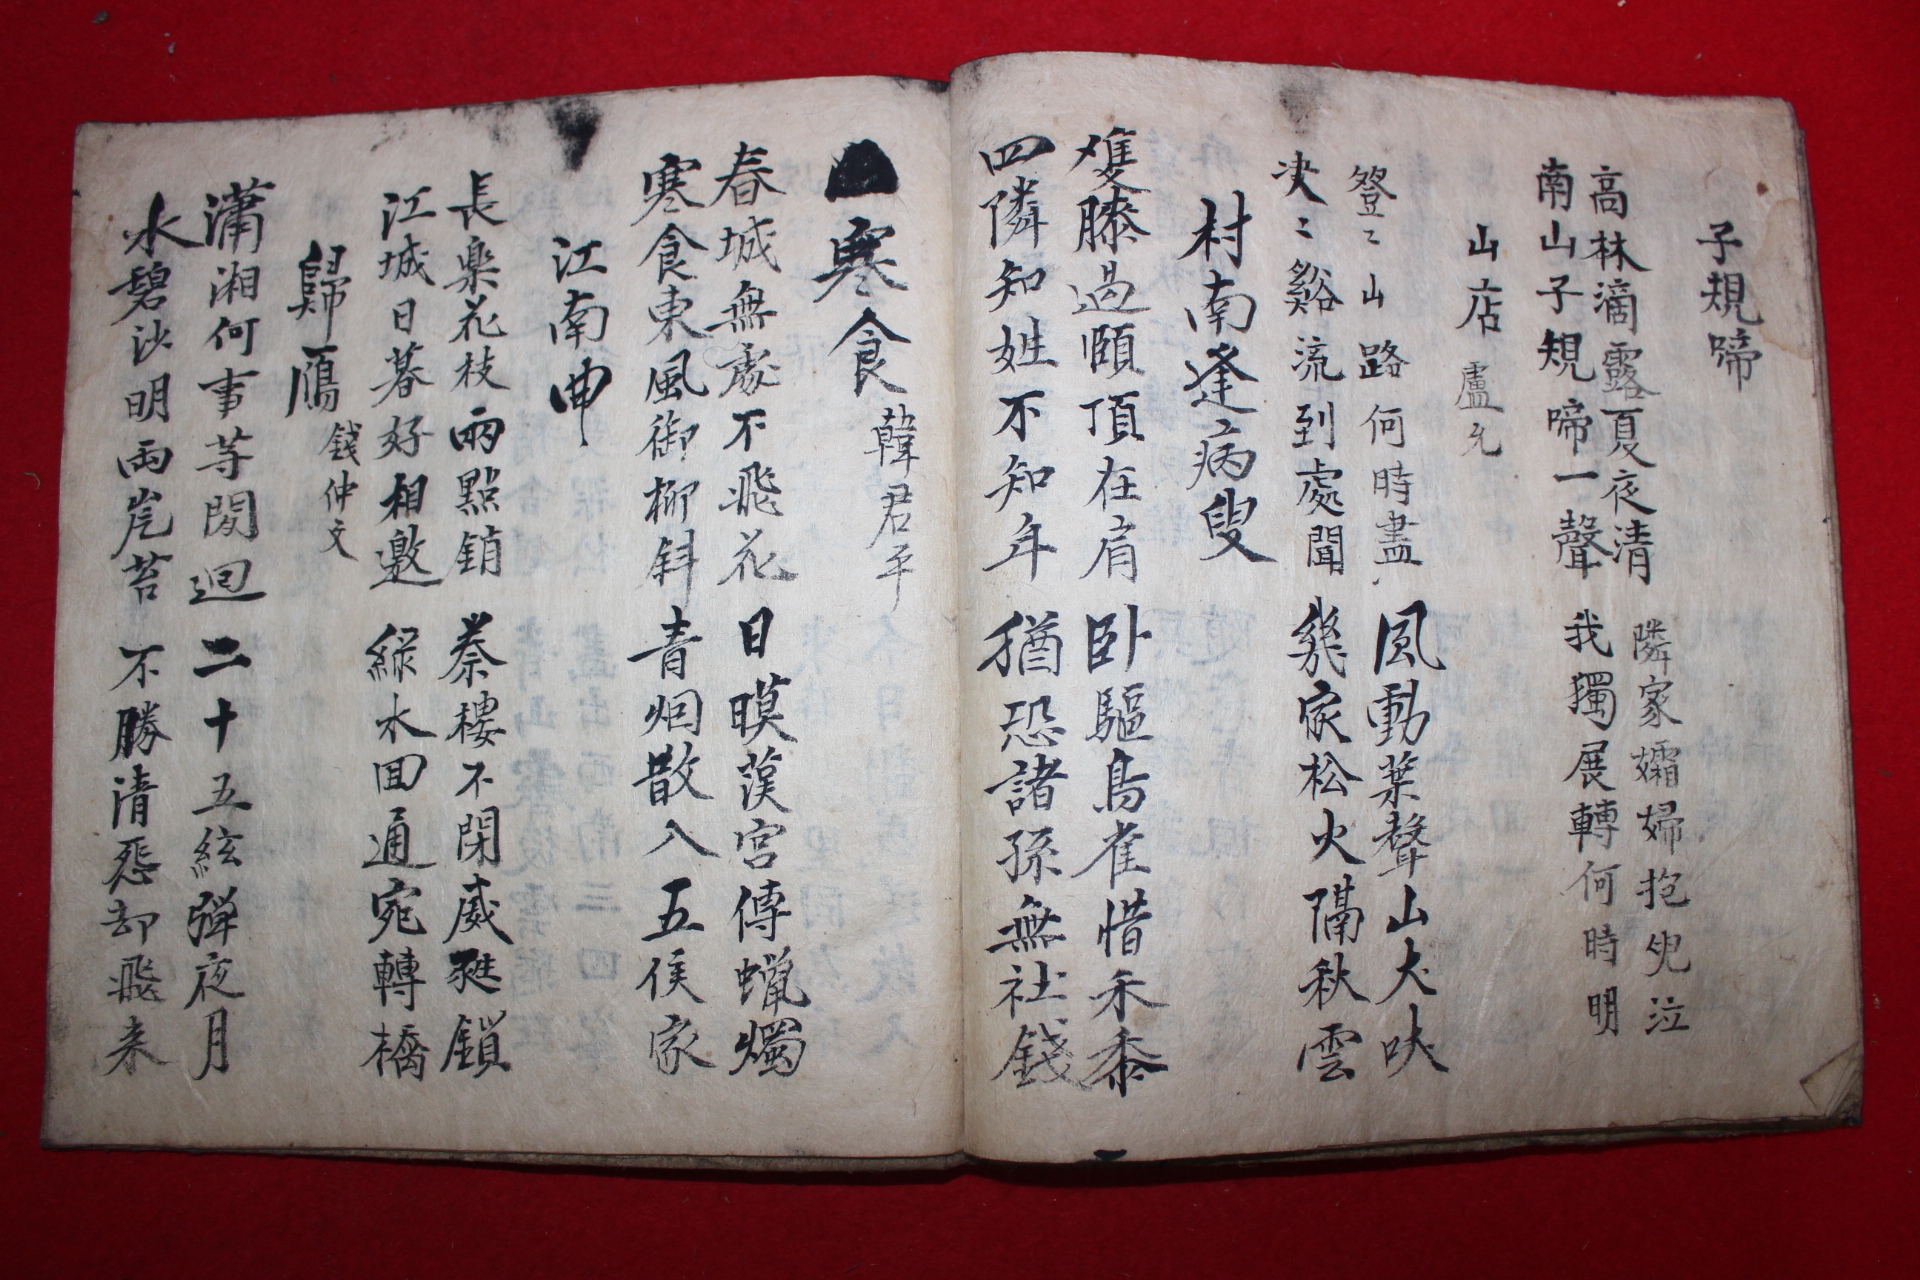 子規啼
高林滴露夏夜清 隣家孀婦抱兒泣
南山子規啼一聲 我獨展轉何時明
山店 盧允
登〻山路何時盡 風動葉聲山犬吠
决〻谿流到處聞 幾家松火隔秋雲
村南逢病叟
雙膝過頤頂在肩 卧驅鳥雀惜禾黍
四隣知姓不知年 猶恐諸孫無社錢
寒食 韓君平
春城無處不飛花 日暯漢宮傳蠟燭
寒食東風御柳斜 青烟散入五侯家
江南曲
長樂花枝兩點銷 秦樓不閉葳甤鎖
江城日暮好相邀 綠水回通宛轉橋
歸鴈 錢仲文
瀟湘何事等閑迴 二十五絃彈夜月
水碧沙明兩岸苔 不勝清怨却飛来